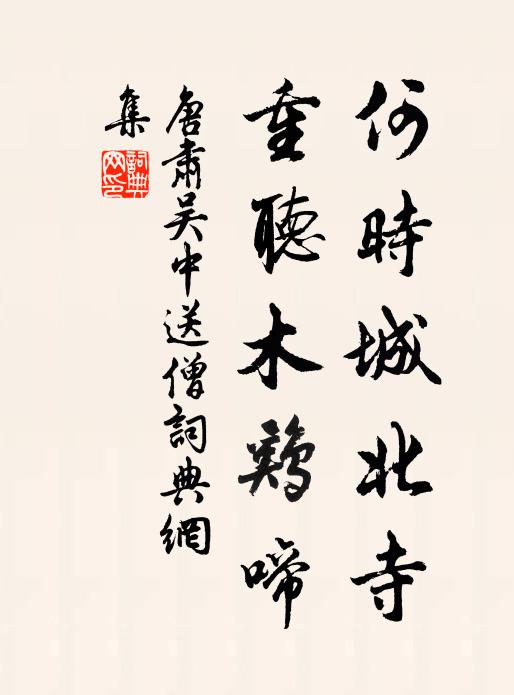 何時城北寺
重聽木鷄啼
唐肅吳中送僧詞典網
集
詞典網印